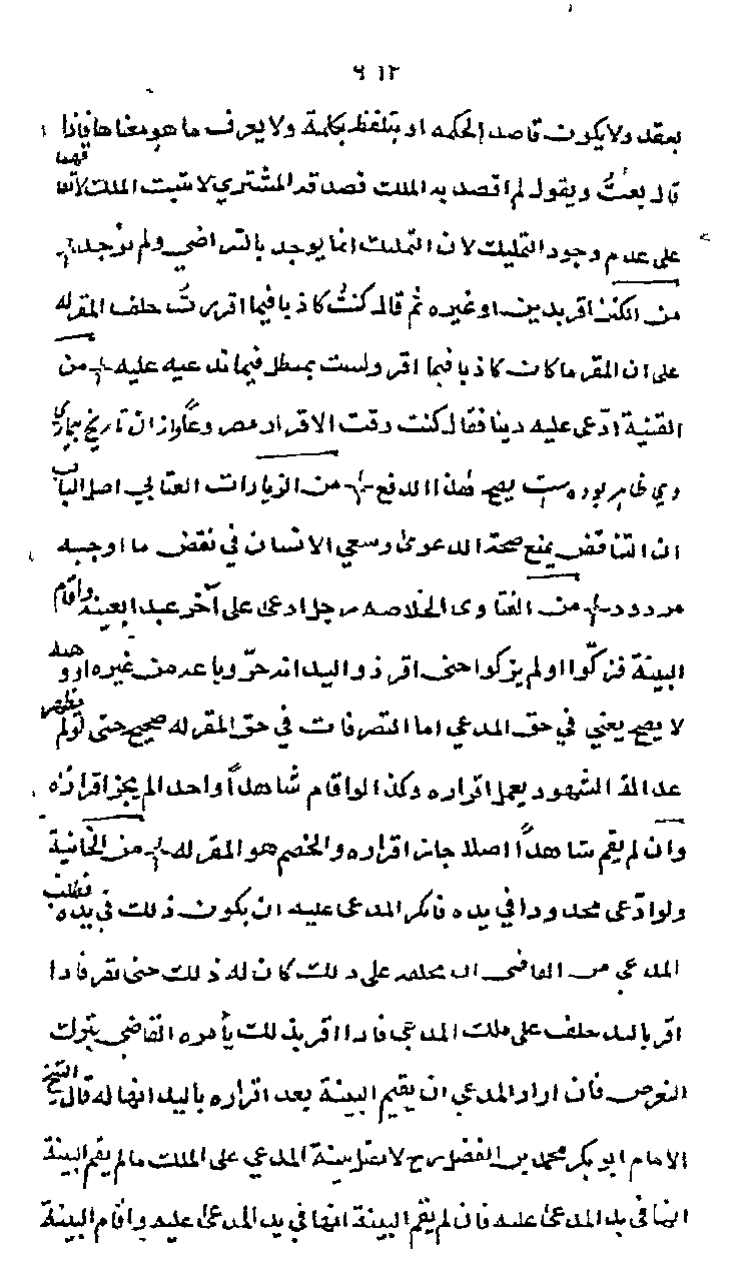 ٩١٢
بعقد ولا يكون قاصد الحكمه او يتلفظ بكلمة ولا يعرف ما هو معناها فاذا
قال بعتُ ويقول لم اقصد به الملك فصدقه المشتري لا يثبت الملك لاتفاقهما
على عدم وجود التمليك لان التمليك انما يوجد بالتراضي ولم يوجد
من الكنز اقر بدين او غيره ثم قال كنتُ كاذبا فيما اقررتُ حلف المقر له
على ان المقر ما كان كاذبا فيما اقر ولست بمبطل فيما تدعيه عليه من
القنية ادّعى عليه دينا فقال كنت وقت الاقرار بمصر و از ان تاريخ بيمارى
وي ظاهر بوده ست يصح هذا الدفع من الزيادات العتابي اصل الباب
ان التناقض يمنع صحة الدعوى وسعي الانسان في نقض ما اوجبه
مردود من الفتاوى الخلاصه رجل ادعى على آخر عبدا بعينه واقام
البينة فزكّوا او لم يزكوا حتى اقر ذو اليد انه حرّ وباعه من غيره او وهبه
لا يصح يعني في حق المدعي اما التصرفات في حق المقر له صحيح حتى لو لم يظهر
عدالة الشهود يعمل اقراره وكذا لو اقام شاهداً واحدا لم يجز اقراره
وان لم يقم شاهداً اصلا جاز اقراره والخصم هو المقر له من الخانية
ولو ادّعى محدودا في يده فانكر المدعى عليه ان يكون ذلك في يده فطلب
المدعي من القاضي ان يحلفه على ذلك كان له ذلك حتى يقر فاذا
اقر باليد حلف على ملك المدعي فاذا اقر بذلك يأمره القاضي بترك
التعرض فان اراد المدعي ان يقيم البينة بعد اقراره باليد انها له قال الشيخ
الامام ابو بكر محمد بن الفضل رح لا تقبل بينة المدعي على الملك ما لم يقم البينة
انها في يد المدعى عليه فان لم يقم البينة انها في يد المدعى عليه واقام البينة